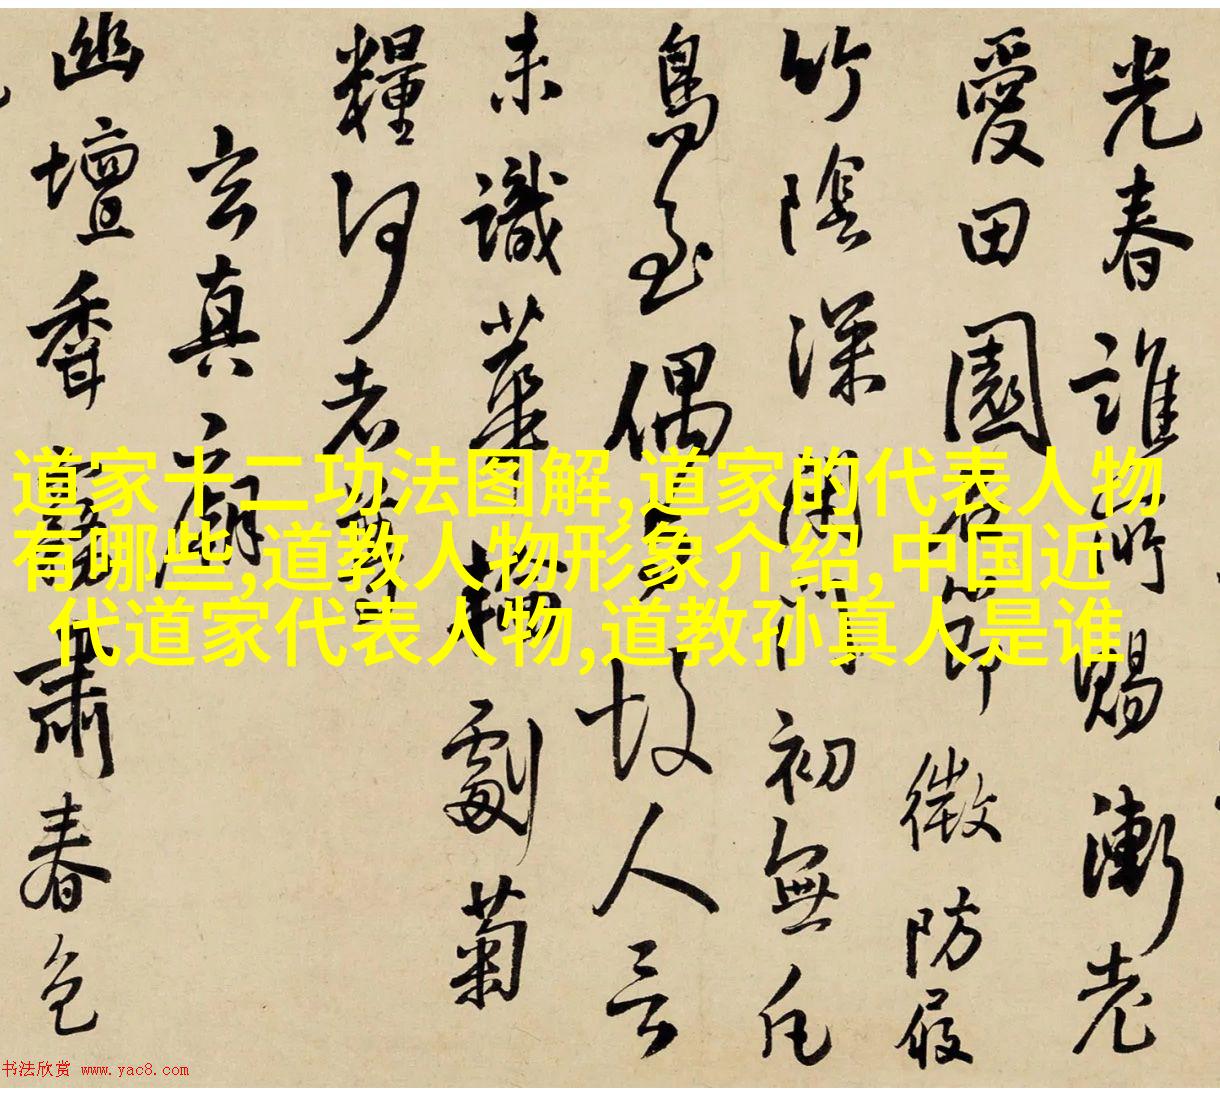 光春誰所賜漸老
愛田園居節微防屐
竹陰深閑門初無
鳥至偶
故人言
未識華
劇菊
糧何老
玄真廟
幽壇香
肅春色
道家十二功法图解,道家的代表人物
有哪些,道教人物形象介绍,中国近
代道家代表人物,道教孙真人是谁
书法欣赏 www.yac8.com